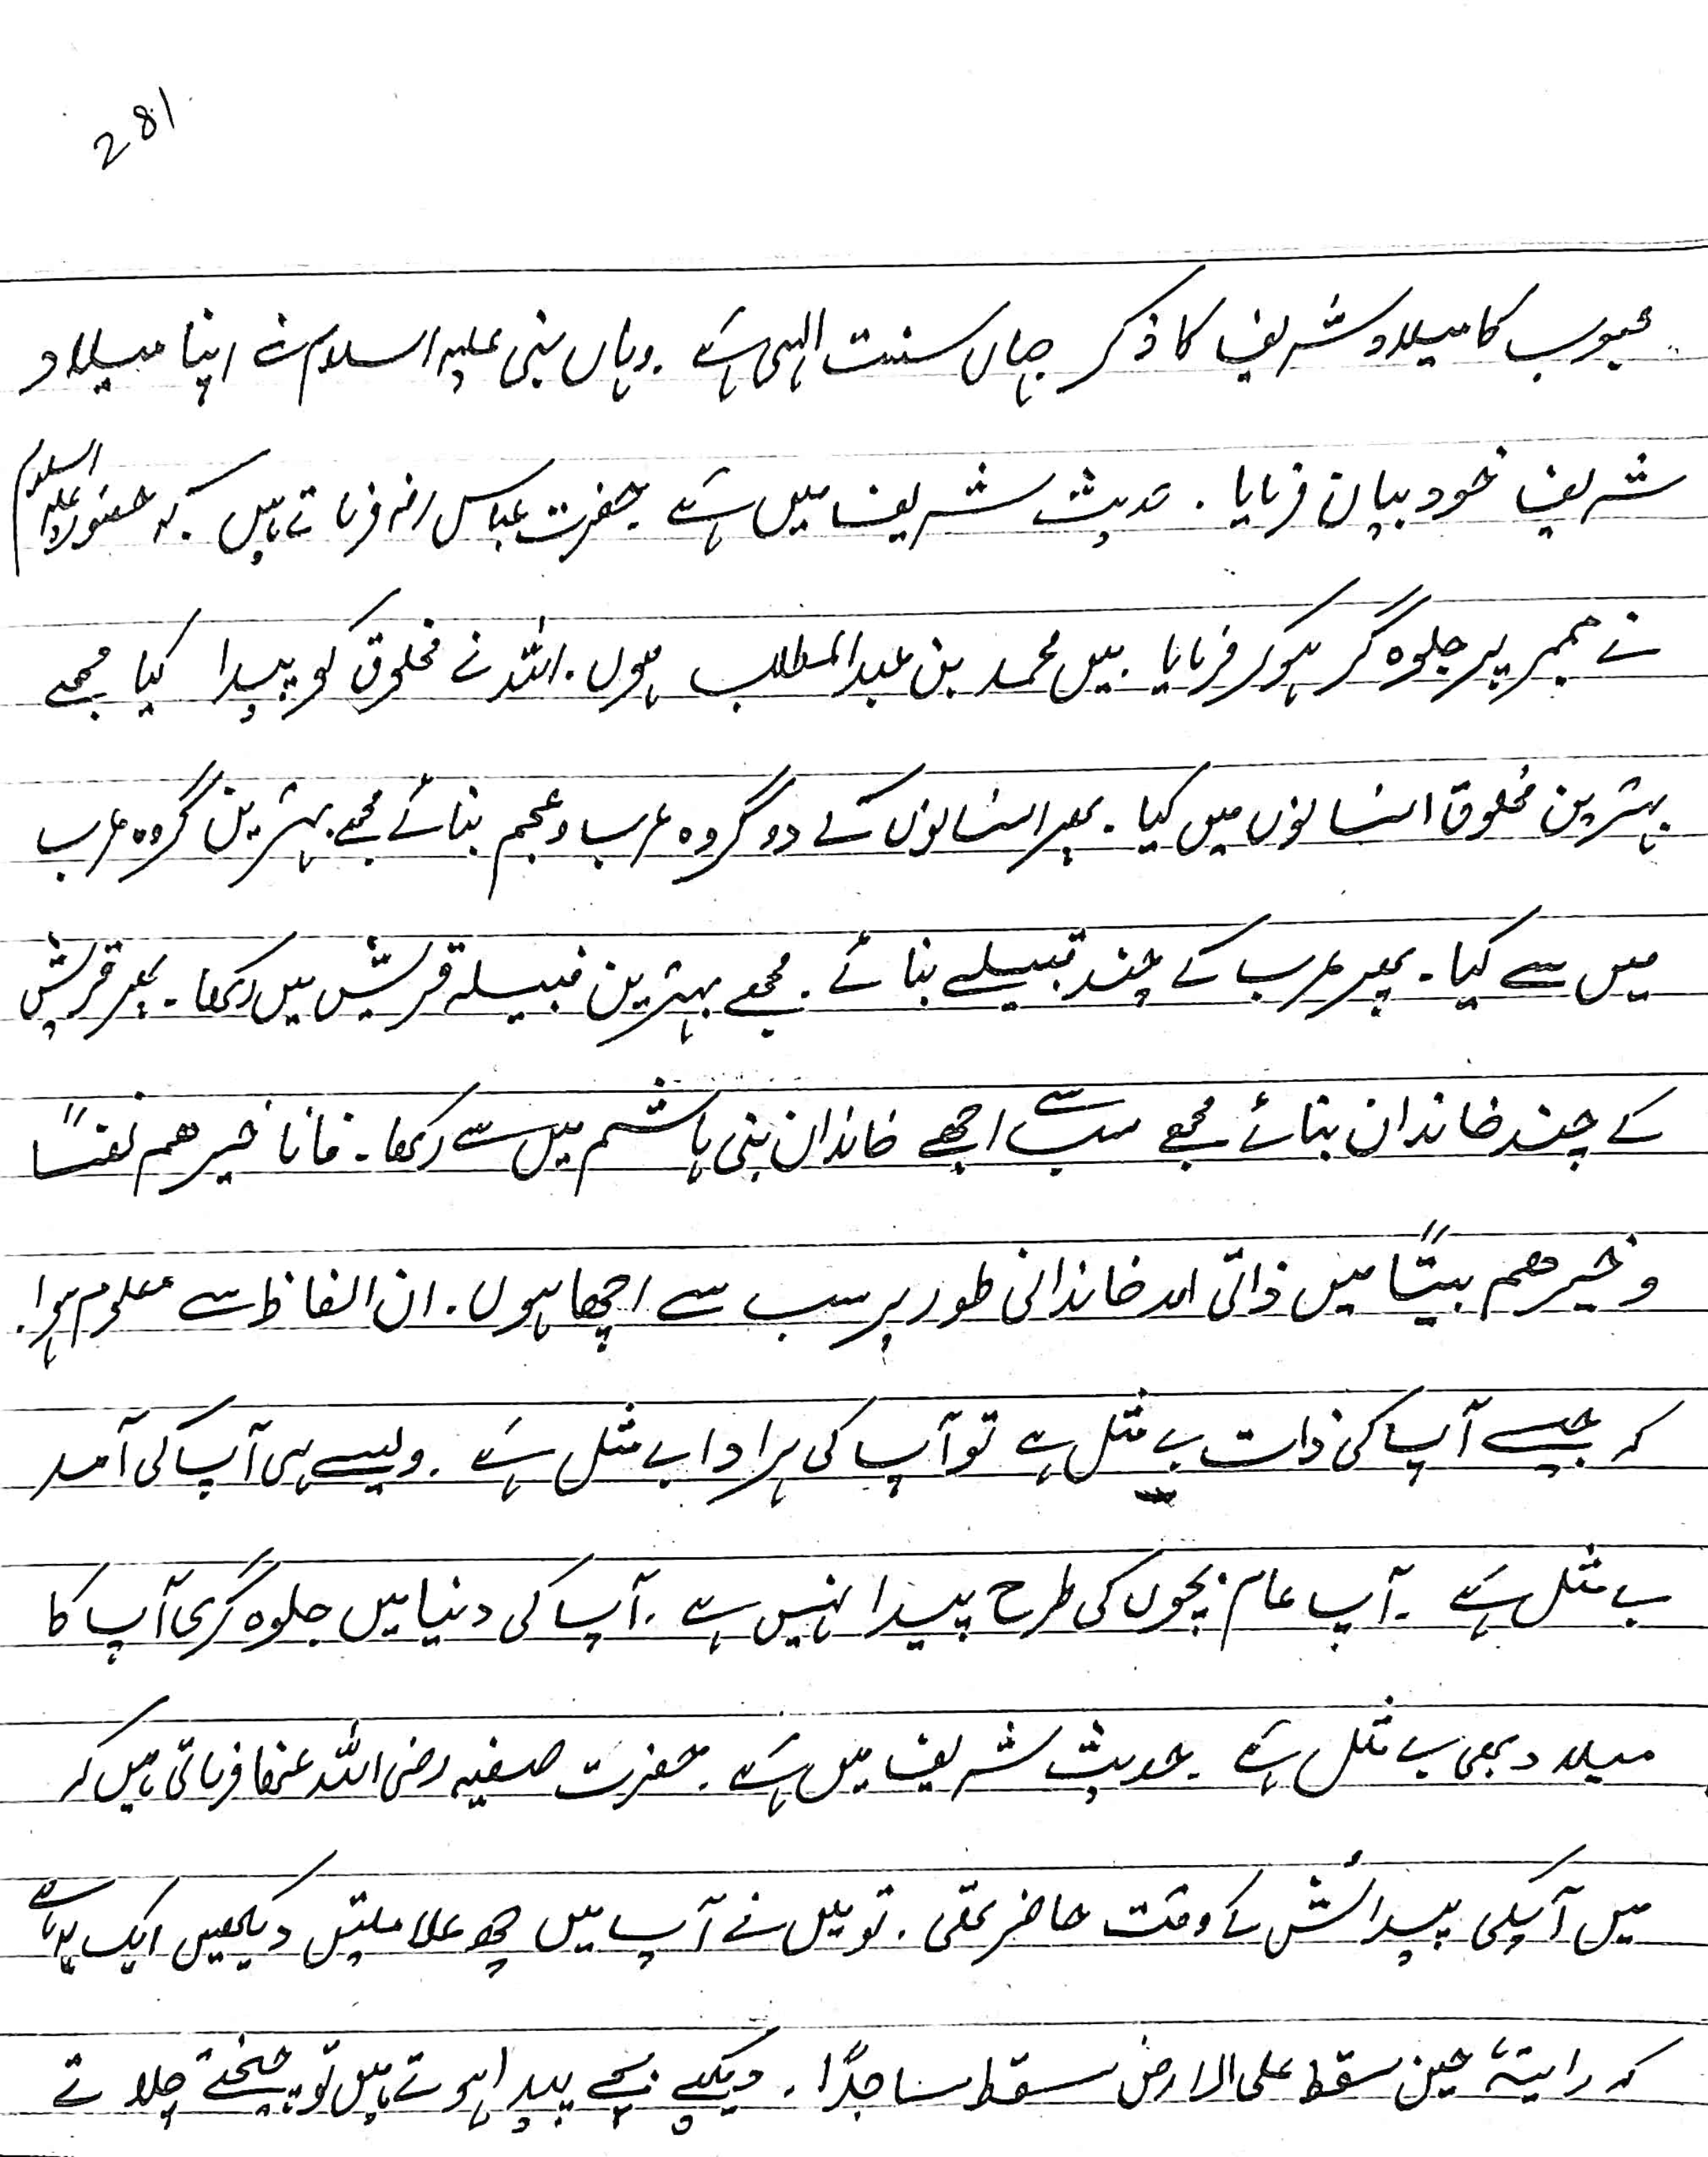 281
محبوب کا میلاد شریف کا ذکر جہاں سنت الہی ہے۔ وہاں نبی علیہ السلام نے اپنا میلاد
شریف خود بیان فرمایا۔ حدیث شریف میں ہے حضرت عباس رضہ فرماتے ہیں۔ کہ حضور علیہ السلام
نے ممبر پر جلوہ گر ہو کر فرمایا۔ میں محمد بن عبدالمطلب ہوں۔ اللہ نے مخلوق کو پیدا کیا مجھے
بہترین مخلوق انسانوں میں کیا۔ پھر انسانوں کے دو گروہ عرب و عجم بنائے مجھے بہترین گروہ عرب
میں سے کیا۔ پھر عرب کے چند قبیلے بنائے۔ مجھے بہترین قبیلہ قریش میں رکھا۔ پھر قریش
کے چند خاندان بنائے مجھے سب سے اچھے خاندان بنی ہاشم میں سے رکھا۔ فانا خیرھم نفساً
و خیرھم بیتاً میں ذاتی اور خاندانی طور پر سب سے اچھا ہوں۔ ان الفاظ سے معلوم ہوا۔
کہ جیسے آپ کی ذات بے مثل ہے تو آپ کی ہر ادا بے مثل ہے۔ ویسے ہی آپ کی آمد
بے مثل ہے۔ آپ عام بچوں کی طرح پیدا نہیں ہے۔ آپ کی دنیا میں جلوہ گری آپ کا
میلاد بھی بے مثل ہے۔ حدیث شریف میں ہے۔ حضرت صفیہ رضی اللہ عنھا فرماتی ہیں کہ
میں آپکی پیدائش کے وقت حاضر تھی۔ تو میں نے آپ میں چھ علامتیں دیکھیں ایک یہ ہے
کہ رایتہٗ حین سقط علی الارض سقط ساجدًا۔ دیکھیے بچے پیدا ہوتے ہیں تو چیختے چلاتے